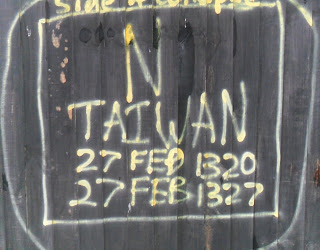 Side
N
TAIWAN
27 FEB 1320
27 FEB 1327